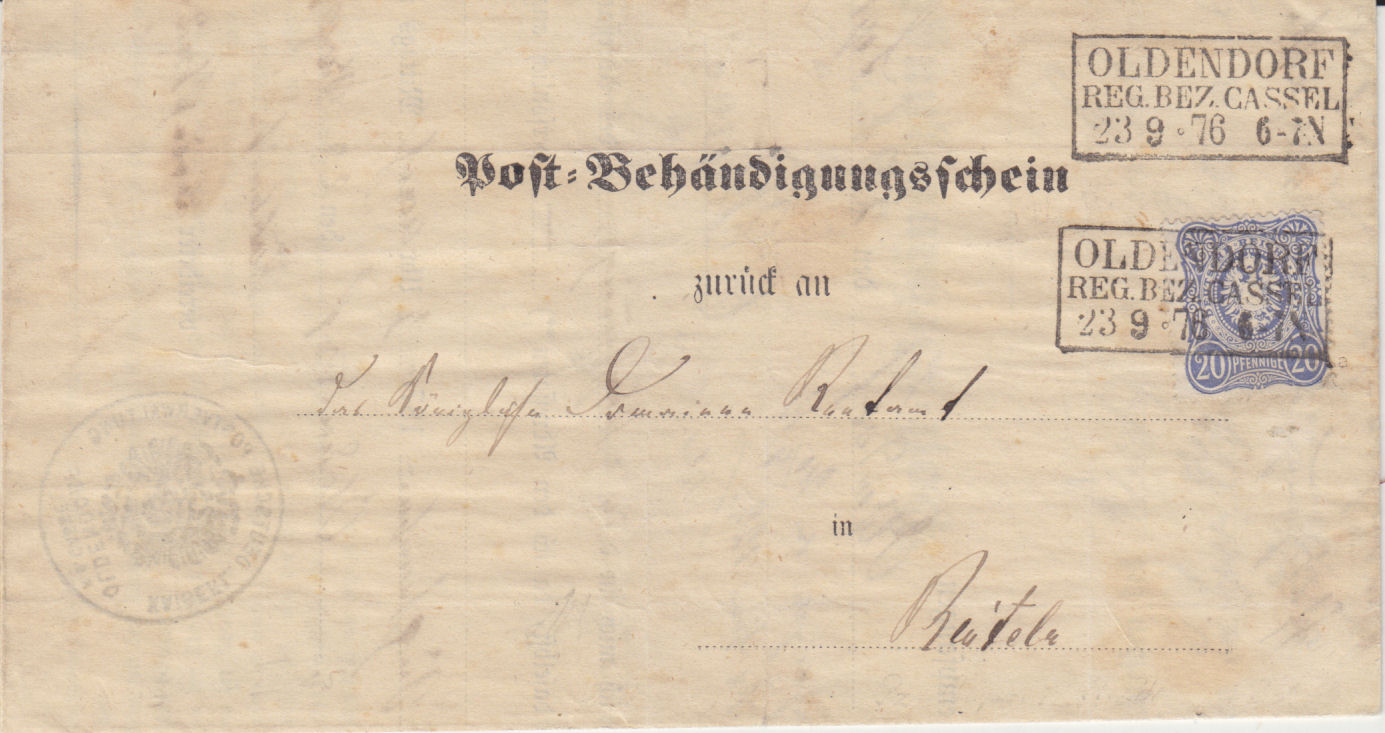 OLDENDORF
REG. BEZ. CASSEL
23 9 · 76 6-7N
Post-Behändigungsschein
OLDENDORF
REG. BEZ. CASSEL
23 9 · 76 6-7N
20 PFENNIGE 20
zurück an
das Königliche Domainen Rentamt
in
Rinteln